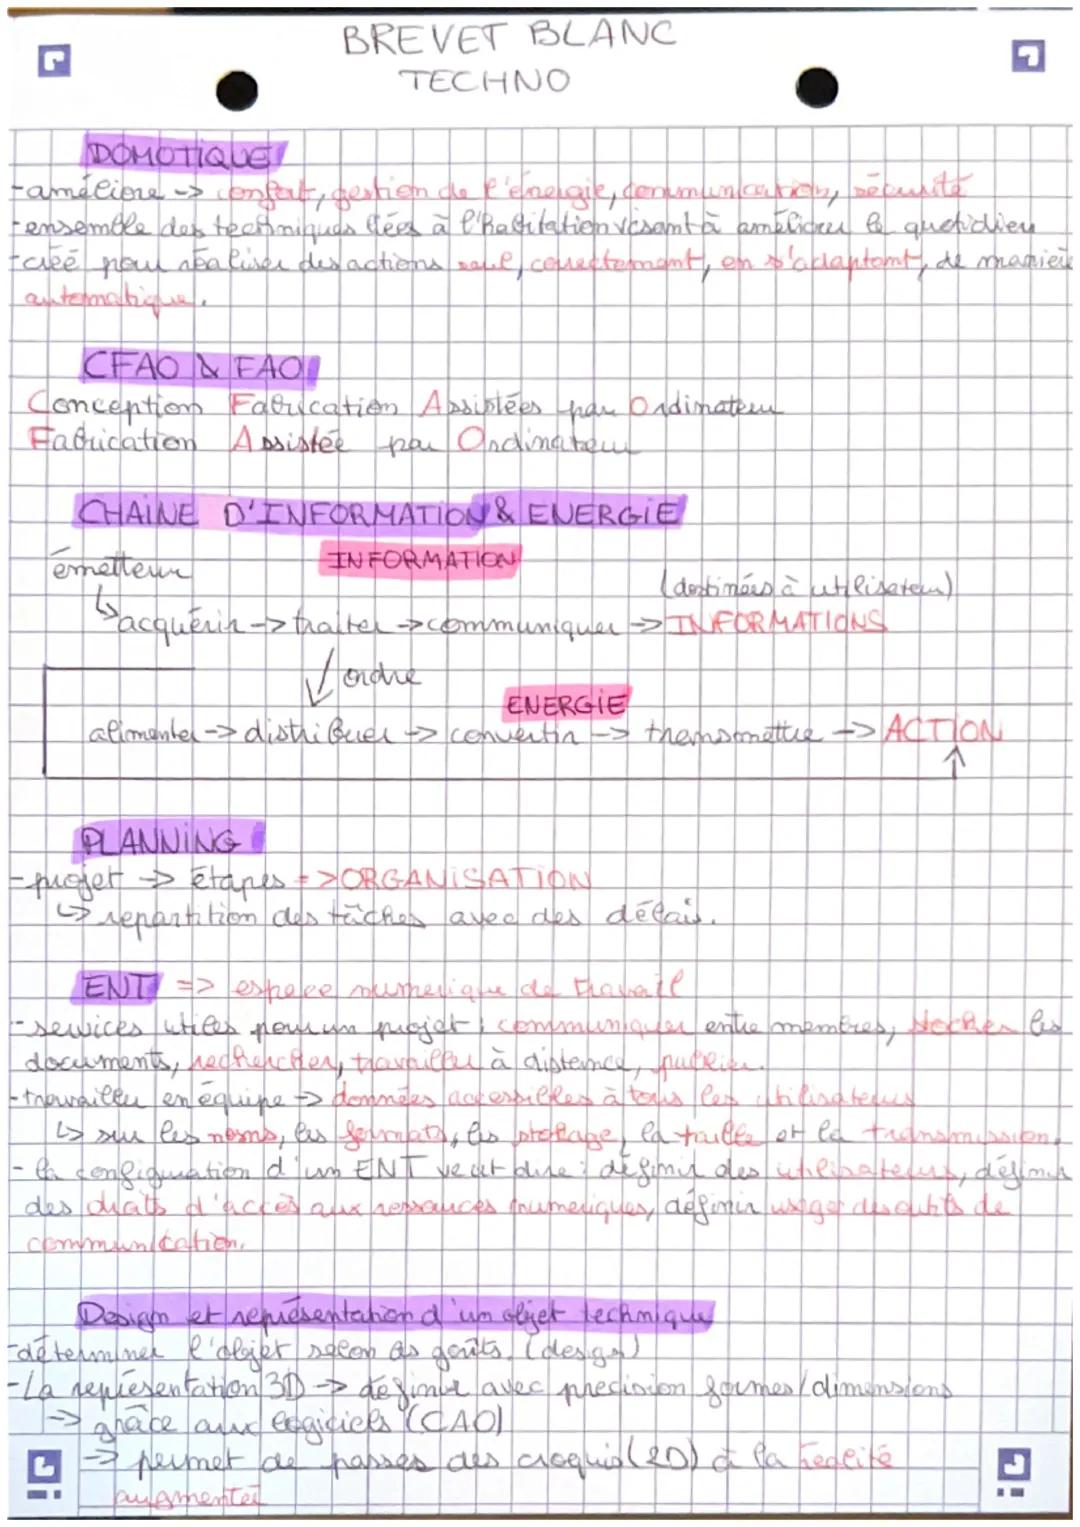 BREVET BLANC
TECHNO
DOMOTIQUE
-améliore -> confort, gestion de l'énergie, communication, sécurité
-ensemble des techniques liées à l'habitation visant à améliorer le quotidien
-créé pour réaliser des actions seul, correctement, en s'adaptant, de manière
automatique.
CFAO & FAO
Conception Fabrication Assistées par Ordinateur
Fabrication Assistée par Ordinateur
CHAINE D'INFORMATION & ENERGIE
émetteur INFORMATION
(destinées à utilisateur)
↳acquérir -> traiter -> communiquer -> INFORMATIONS
↓ ordre
ENERGIE
alimenter -> distribuer -> convertir -> transmettre -> ACTION
PLANNING
-projet -> étapes => ORGANISATION
↳ repartition des tâches avec des délais.
ENT => espace numerique de travail
-services utiles pour un projet : communiquer entre membres, stocker les
documents, rechercher, travailler à distance, publier.
-travailler en équipe -> données accessibles à tous les utilisateurs
↳ sur les noms, les formats, les stokage, la taille et la transmission.
- la configuration d'un ENT veut dire : définir des utilisateurs, définir
des droits d'accès aux ressources numeriques, définir usage des outils de
communication.
Design et représentation d'un objet technique
-déterminer l'objet selon as goûts. (design)
-La représentation 3D -> définir avec precision formes/dimensions
-> grâce aux logiciels (CAO)
-> permet de passer des croquis (2D) à la réalité
augmentée